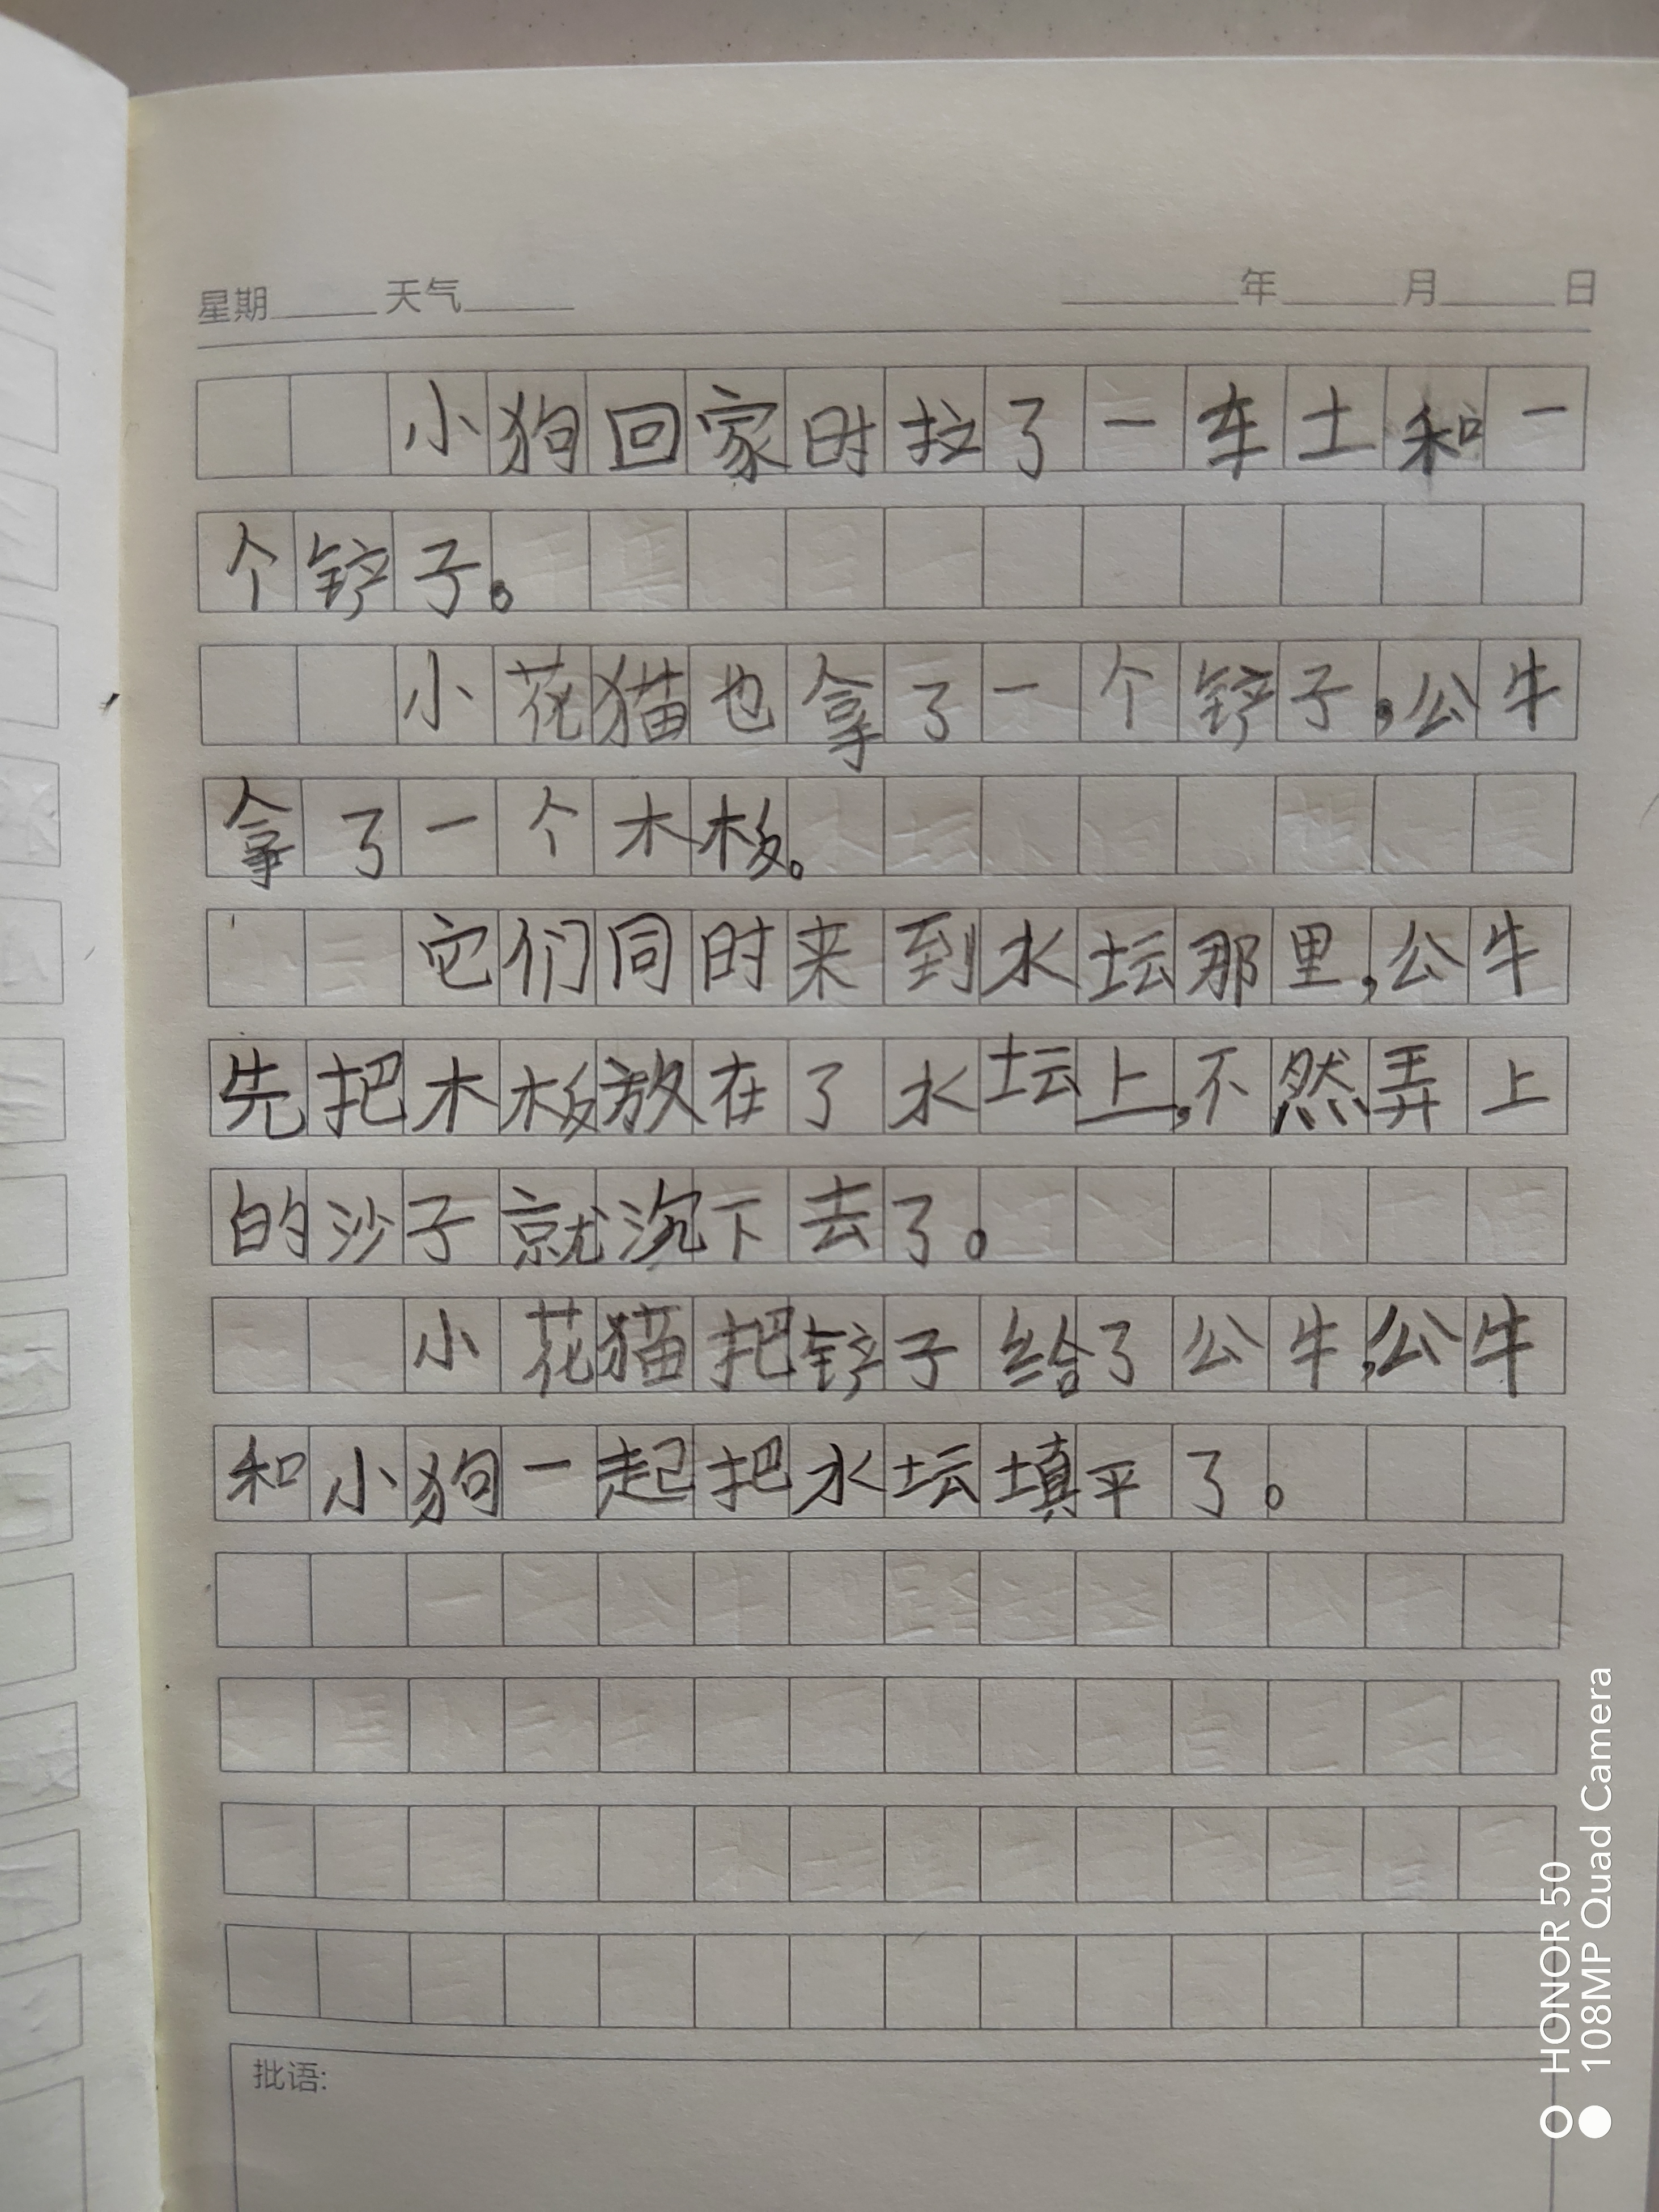 星期 天气 年 月 日
小狗回家时拉了一车土和一
个铲子。
小花猫也拿了一个铲子,公牛
拿了一个木板。
它们同时来到水坛那里,公牛
先把木板放在了水坛上,不然弄上
的沙子就沉下去了。
小花猫把铲子给了公牛,公牛
和小狗一起把水坛填平了。
批语:
HONOR 50
108MP Quad Camera